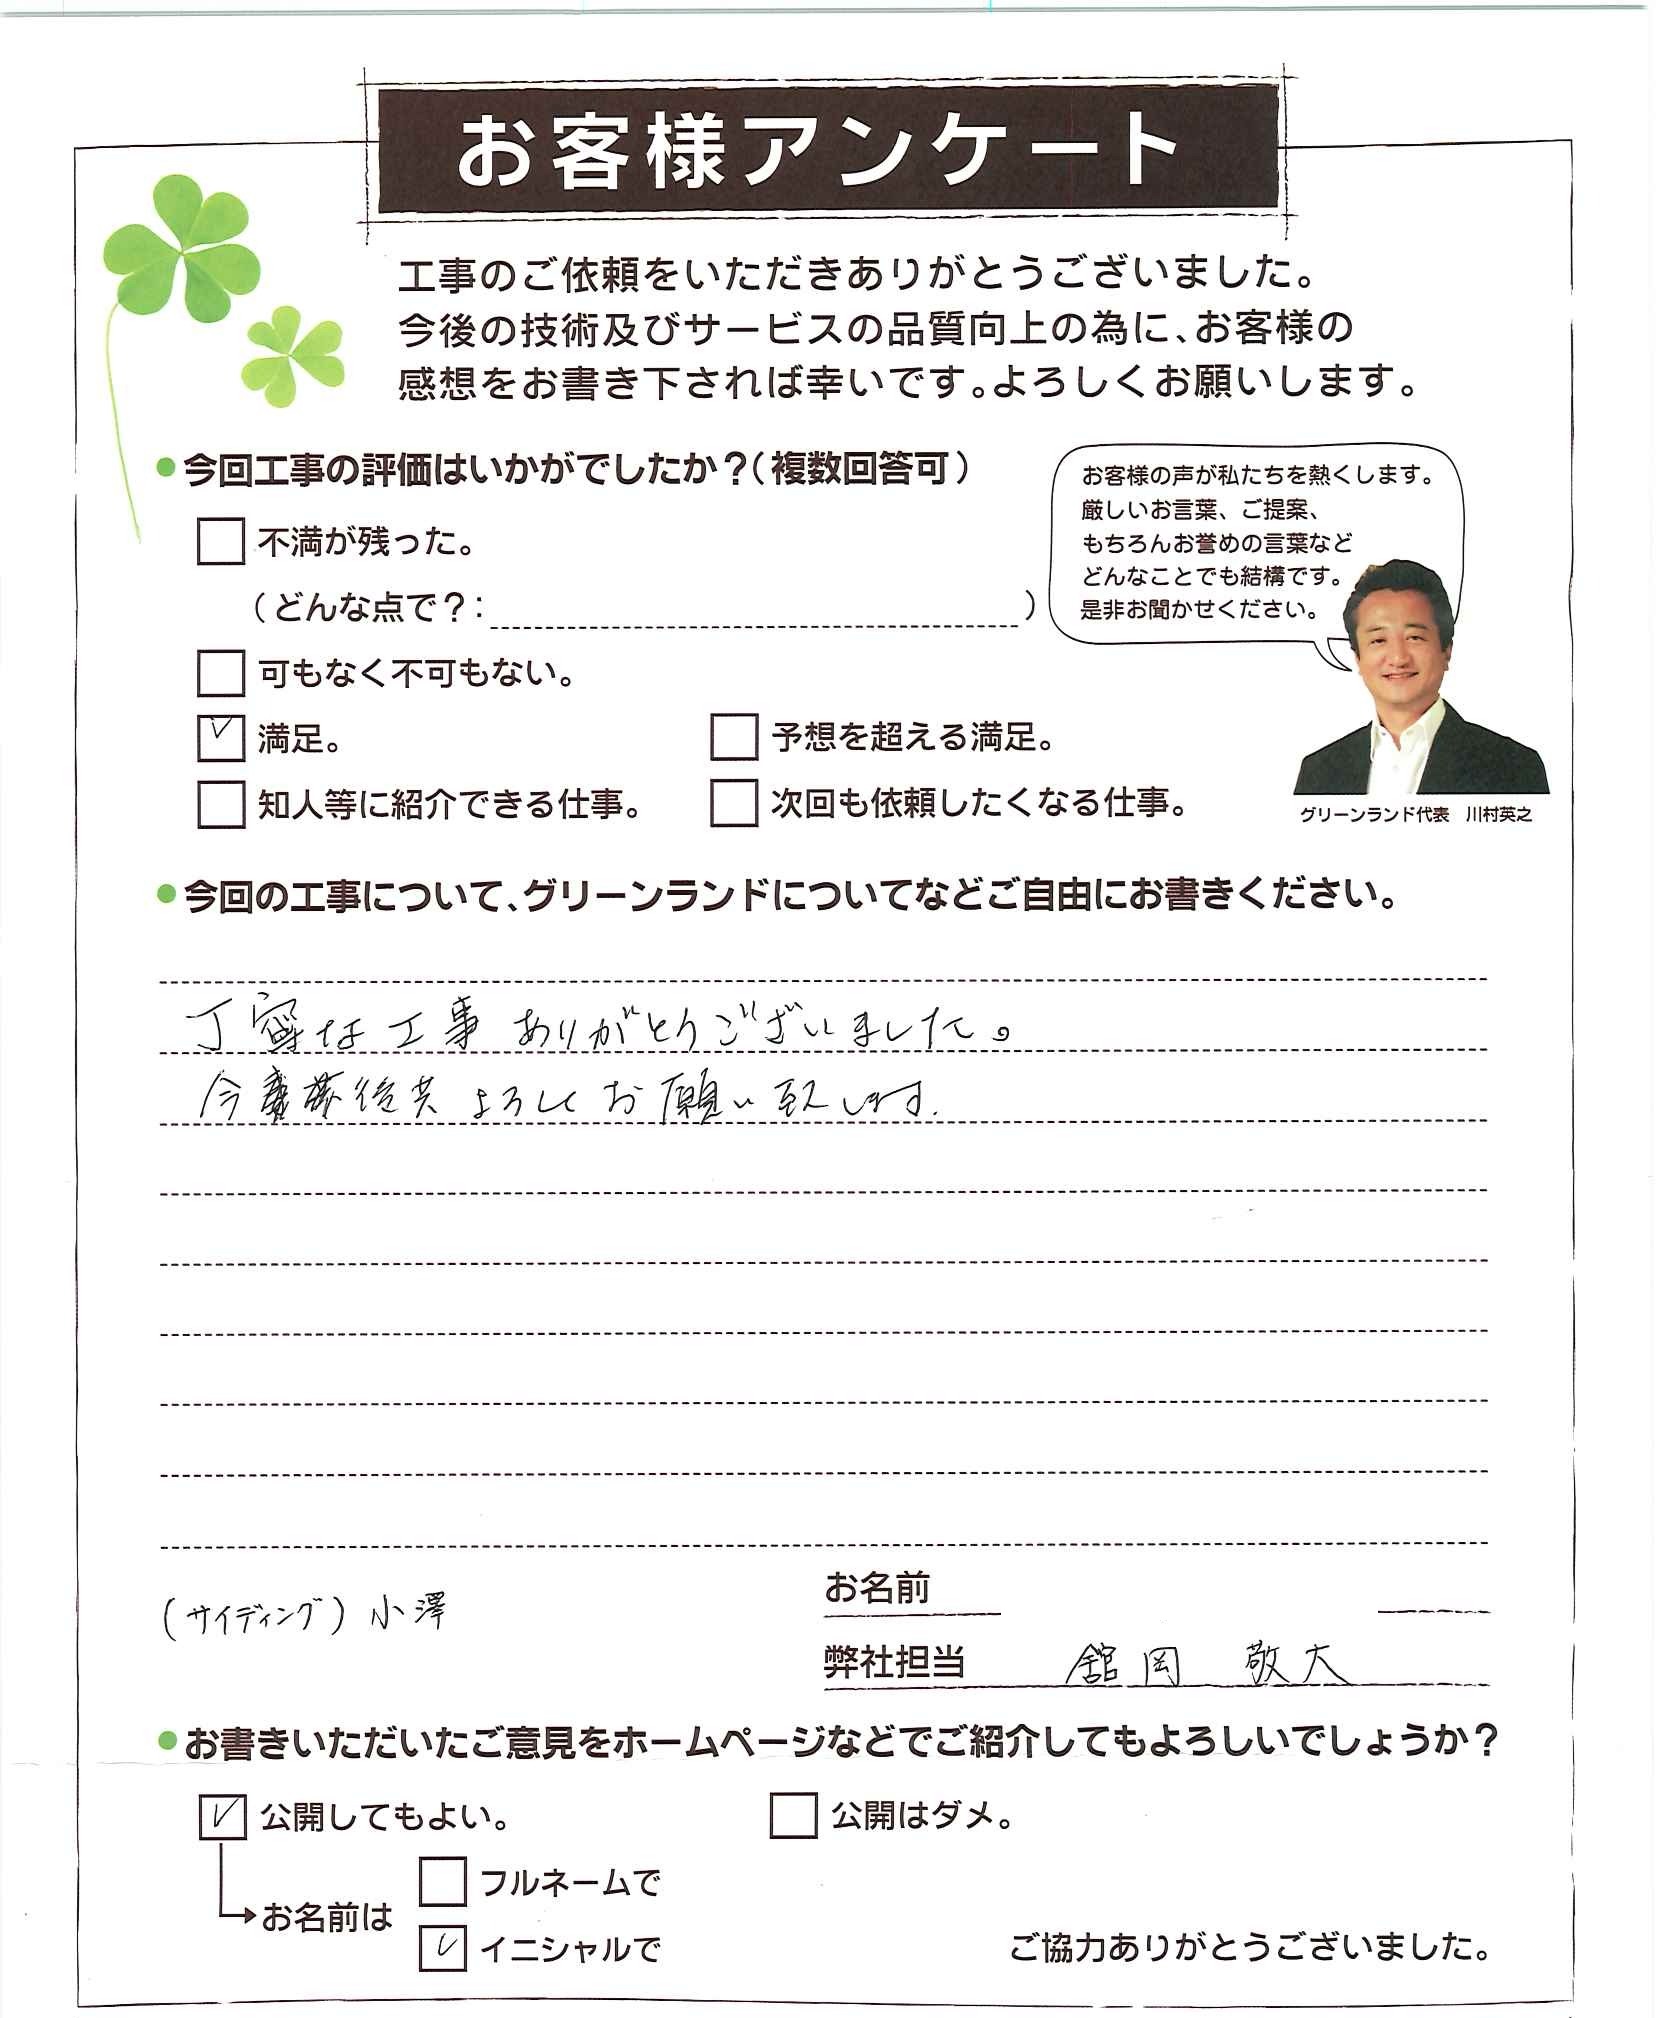 お客様アンケート
工事のご依頼をいただきありがとうございました。
今後の技術及びサービスの品質向上の為に、お客様の
感想をお書き下されば幸いです。よろしくお願いします。
●今回工事の評価はいかがでしたか？（複数回答可）
不満が残った。
（どんな点で？：　）
可もなく不可もない。
満足。
予想を超える満足。
知人等に紹介できる仕事。
次回も依頼したくなる仕事。
お客様の声が私たちを熱くします。
厳しいお言葉、ご提案、
もちろんお誉めの言葉など
どんなことでも結構です。
是非お聞かせください。
グリーンランド代表　川村英之
●今回の工事について、グリーンランドについてなどご自由にお書きください。
丁寧な工事ありがとうございました。
今後共よろしくお願い致します.
(サイディング) 小澤
お名前
弊社担当　舘岡　敬大
●お書きいただいたご意見をホームページなどでご紹介してもよろしいでしょうか？
公開してもよい。
公開はダメ。
お名前は
フルネームで
イニシャルで
ご協力ありがとうございました。